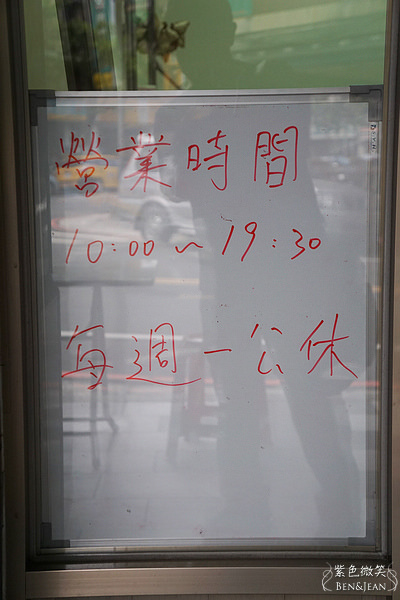 營業時間
10:00~19:30
每週一公休
紫色微笑
BEN&JEAN